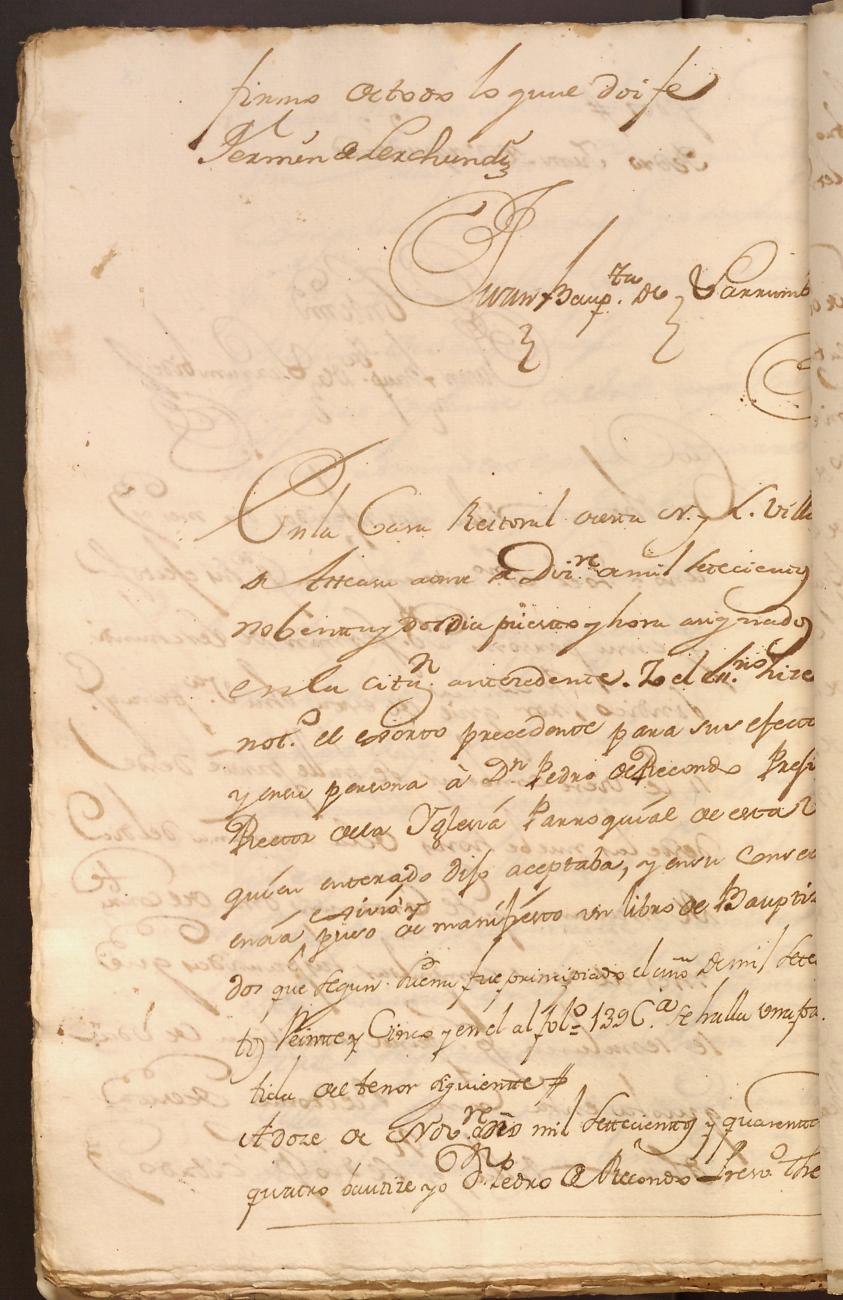 firmo de todo lo qual doi fe
Fermin de Lerchundi
Juan Baup.ta de Larrumb
En la Casa Rectoral de esta N. y L. Villa
de a de Diz.re de mil setecientos
nobenta y dos dia puesto y hora asignados
en la cita.n antecedente. Yo el ess.no hize
not.o el exorto precedente para sus efecto
y en su persona à D.n Pedro de Recondo Presv
Rector de la Yglesia Parroquial de esta V
quien enterado dijo aceptaba, y en su Consec
encia exivió y puso de manifiesto un libro de Baptiza
dos que segun fue principiado el año de mil sete
to) Veinte y Cinco y en el al folo. 139 C.a se halla una pa
tida del tenor siguiente #
A doze de Nov.re de mil settecientos y quarenta
quatro bautize yo D.n Pedro de Recondo Presv.o The